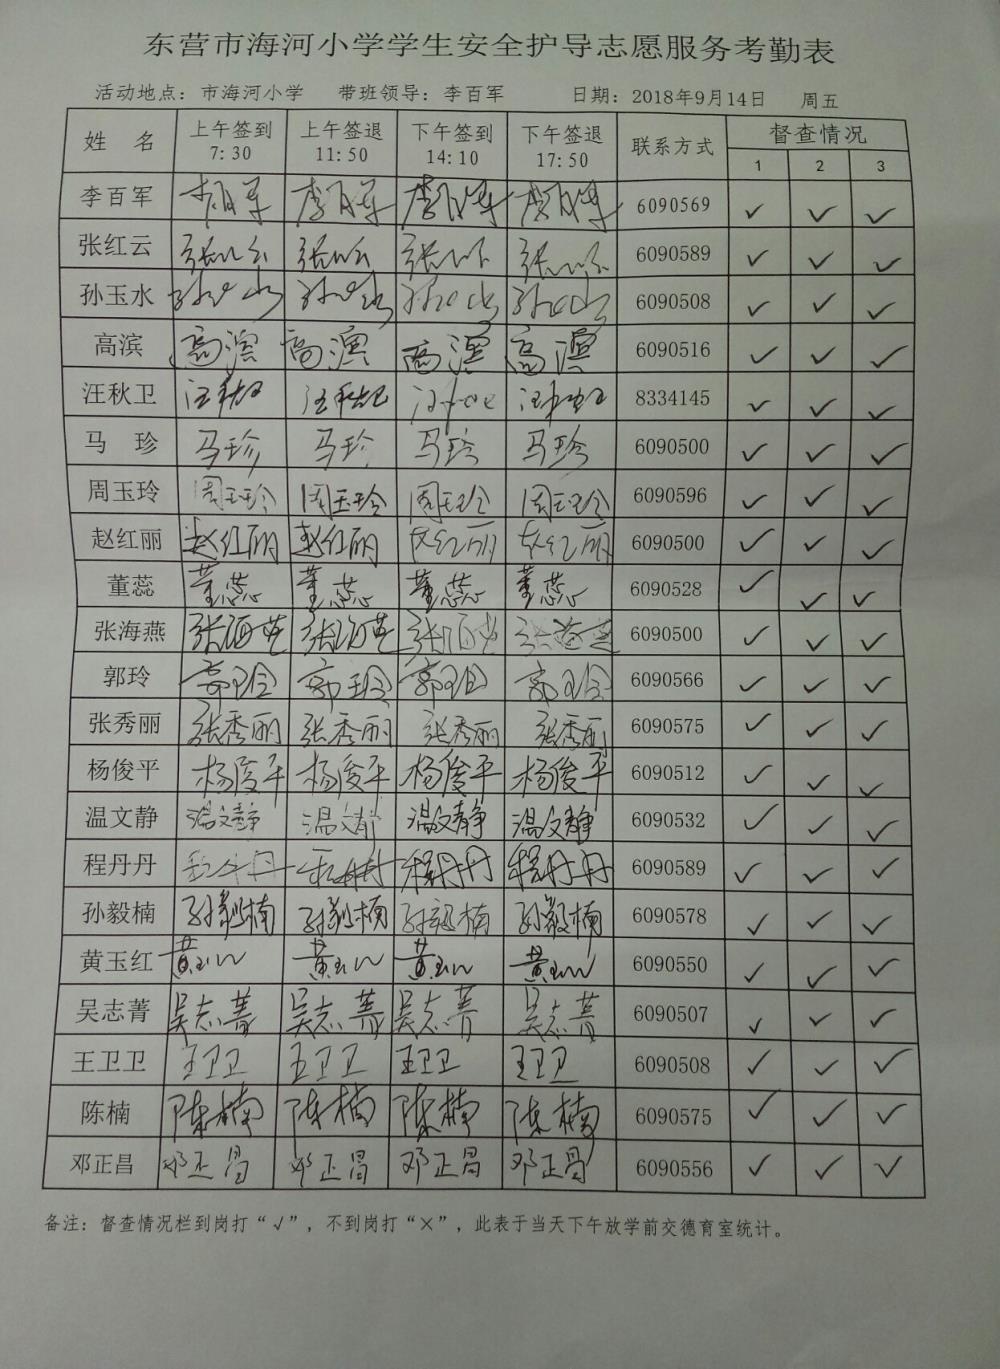 东营市海河小学学生安全护导志愿服务考勤表
活动地点：市海河小学 带班领导：李百军 日期：2018年9月14日 周五
姓 名 上午签到 7:30 上午签退 11:50 下午签到 14:10 下午签退 17:50 联系方式 督查情况 1 2 3
李百军 6090569 ✓ ✓ ✓
张红云 6090589 ✓ ✓ ✓
孙玉水 6090508 ✓ ✓ ✓
高滨 高滨 高滨 高滨 高滨 6090516 ✓ ✓ ✓
汪秋卫 6090 8334145 ✓ ✓ ✓
马 珍 马珍 马珍 马珍 马珍 6090500 ✓ ✓ ✓
周玉玲 周玉玲 周玉玲 周玉玲 周玉玲 6090596 ✓ ✓ ✓
赵红丽 赵红丽 赵红丽 赵红丽 赵红丽 6090500 ✓ ✓ ✓
董蕊 董蕊 董蕊 董蕊 董蕊 6090528 ✓ ✓ ✓
张海燕 6090500 ✓ ✓ ✓
郭玲 郭玲 郭玲 郭玲 郭玲 6090566 ✓ ✓ ✓
张秀丽 张秀丽 张秀丽 张秀丽 张秀丽 6090575 ✓ ✓ ✓
杨俊平 杨俊平 杨俊平 杨俊平 杨俊平 6090512 ✓ ✓ ✓
温文静 温文静 温文静 温文静 温文静 6090532 ✓ ✓ ✓
程丹丹 程丹丹 程丹丹 6090589 ✓ ✓ ✓
孙毅楠 孙毅楠 孙毅楠 孙毅楠 孙毅楠 6090578 ✓ ✓ ✓
黄玉红 6090550 ✓ ✓ ✓
吴志菁 吴志菁 吴志菁 吴志菁 吴志菁 6090507 ✓ ✓ ✓
王卫卫 王卫卫 王卫卫 王卫卫 王卫卫 6090508 ✓ ✓ ✓
陈楠 陈楠 陈楠 陈楠 陈楠 6090575 ✓ ✓ ✓
邓正昌 邓正昌 邓正昌 邓正昌 邓正昌 6090556 ✓ ✓ ✓
备注：督查情况栏到岗打“√”，不到岗打“×”，此表于当天下午放学前交德育室统计。